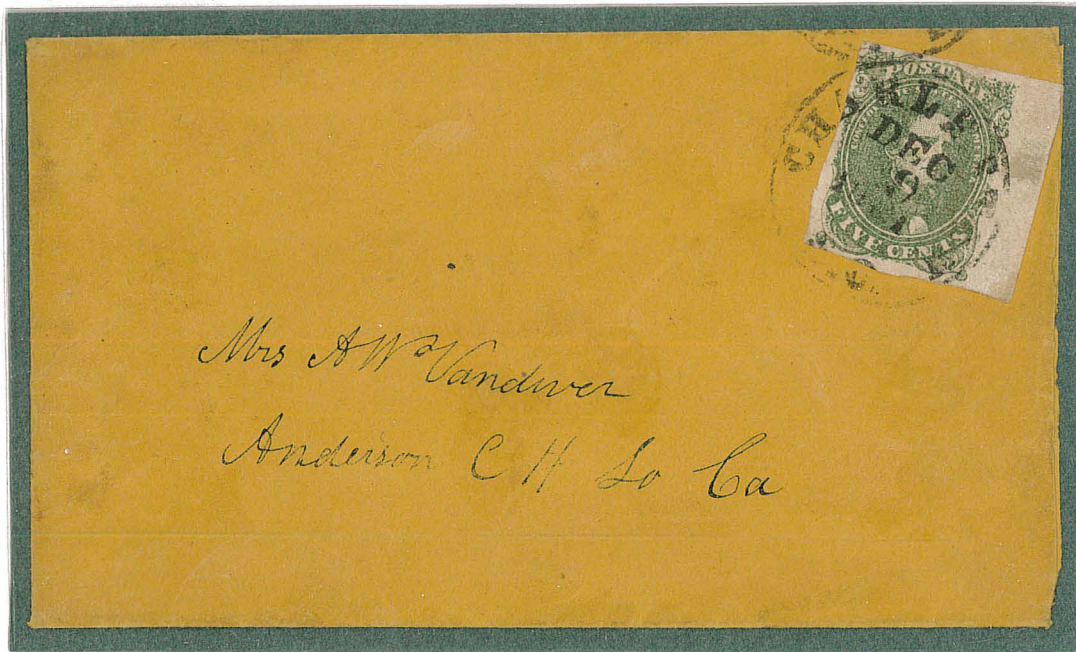 POSTA
CHARLES
DEC
9
FIVE CENTS
Mrs A Wm Vandiver
Anderson C H So Ca